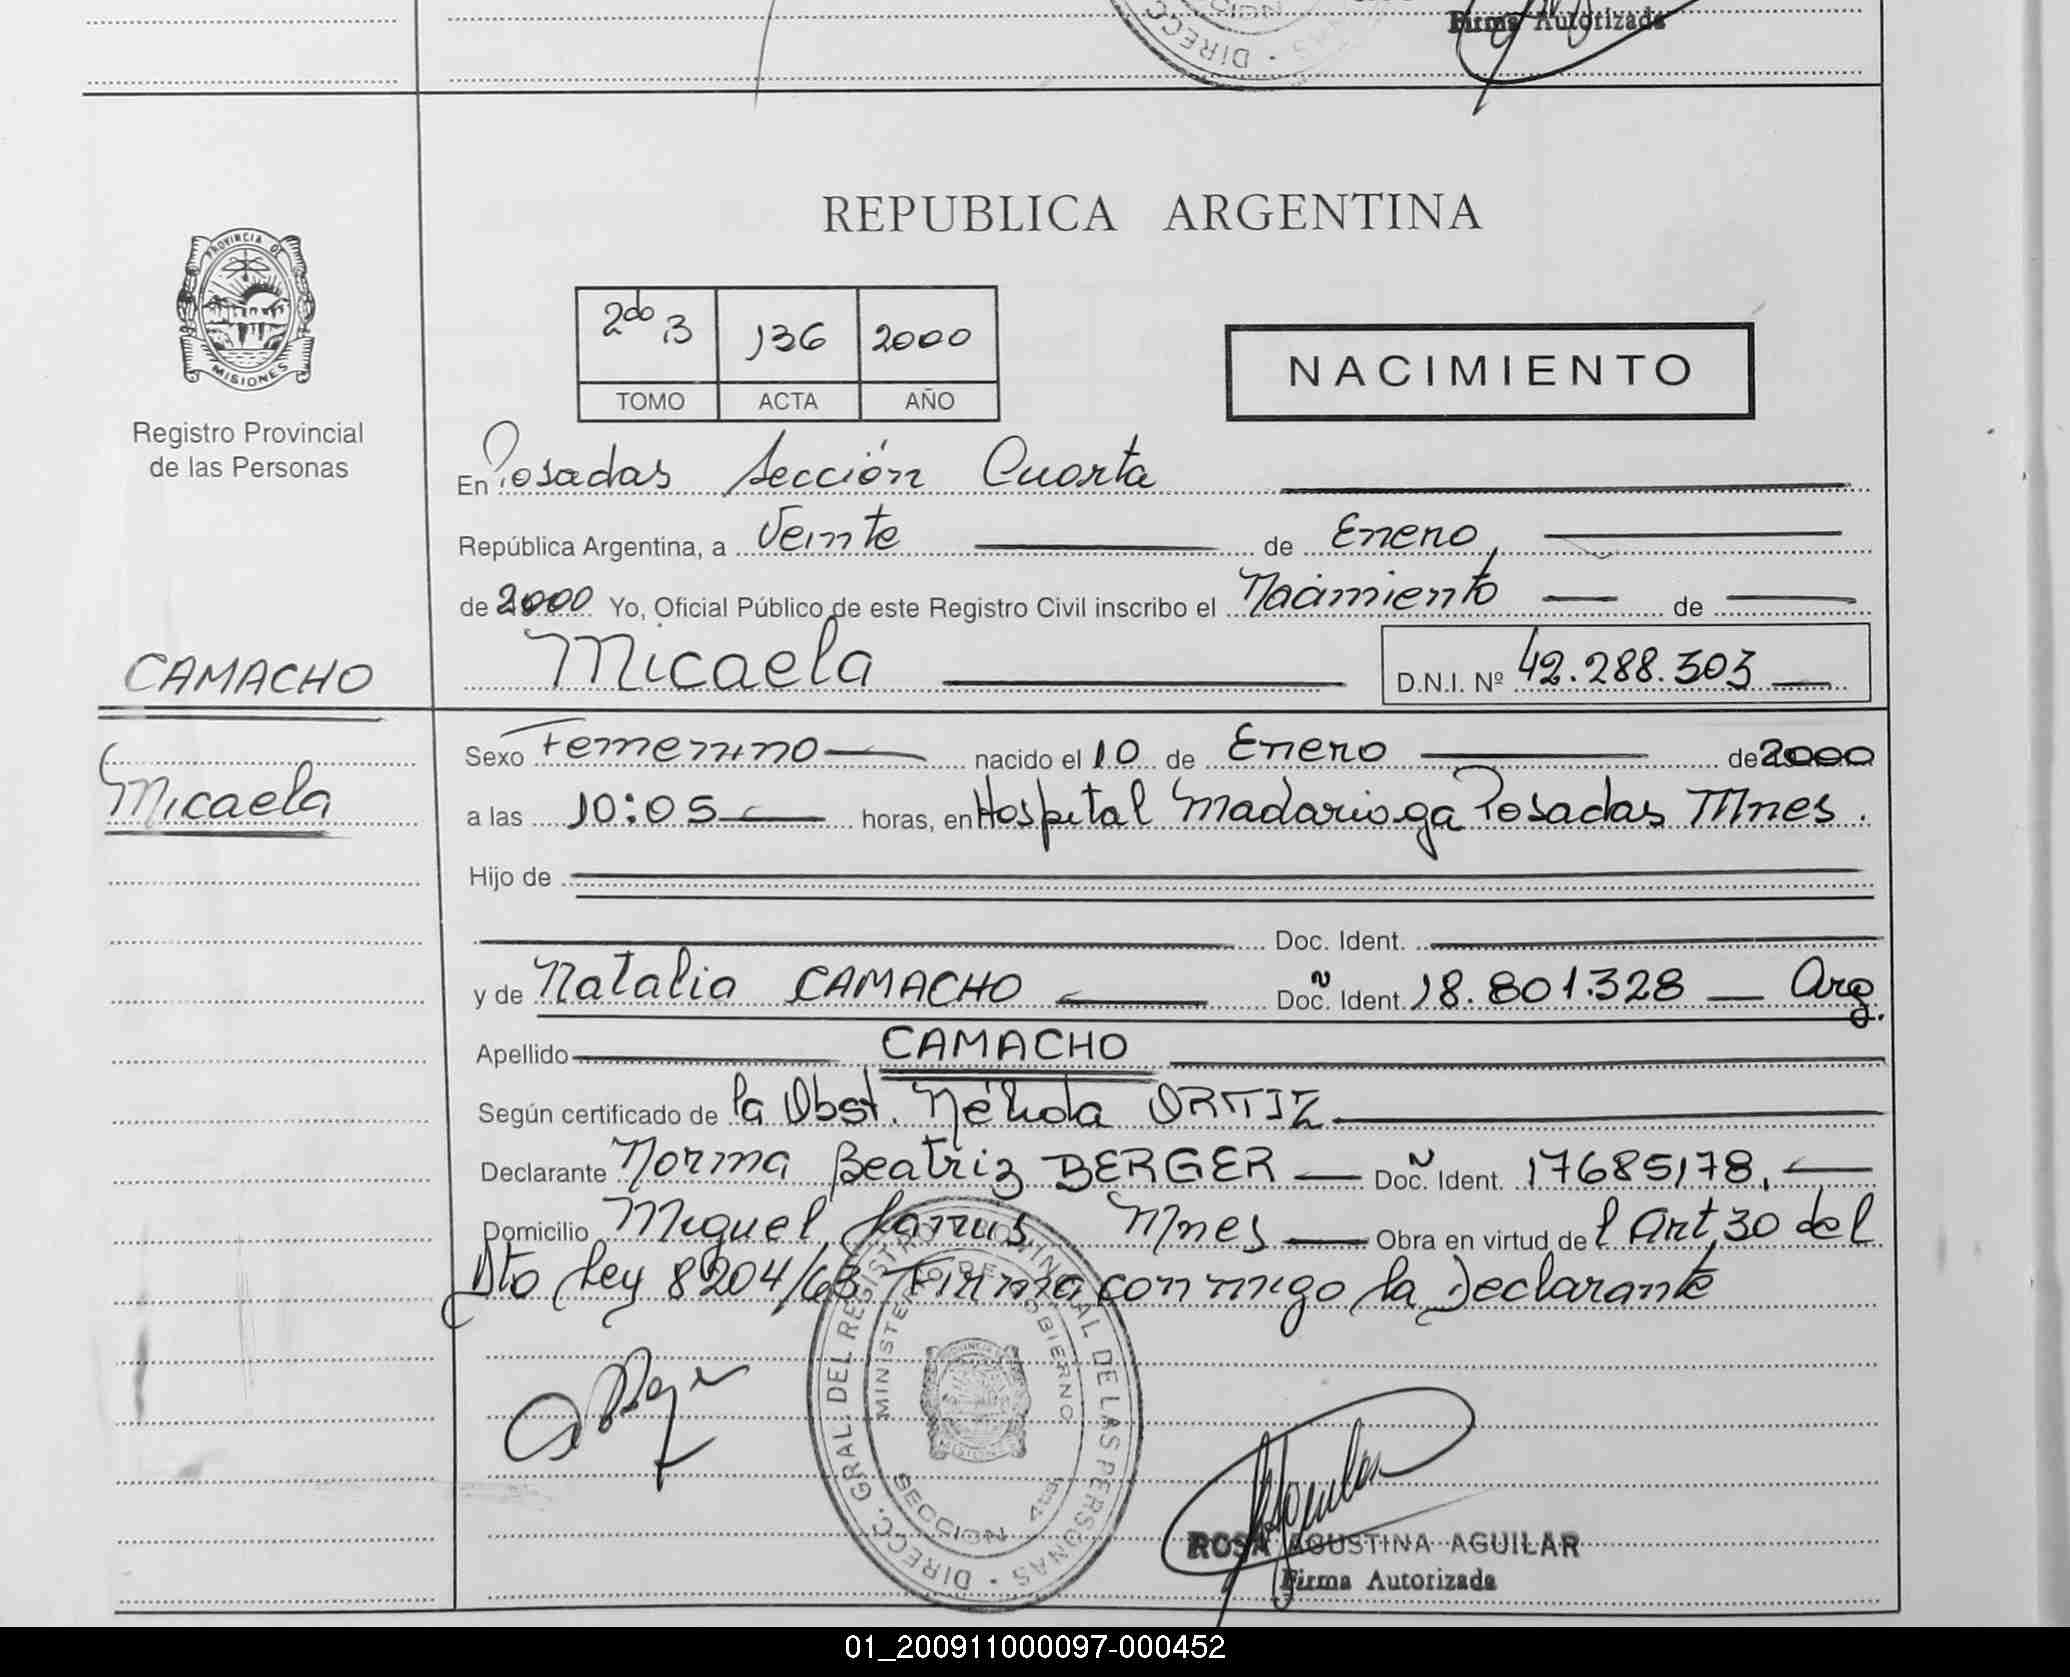 Firma Autorizada
REPUBLICA ARGENTINA
PROVINCIA DE
MISIONES
2do 3 136 2000
TOMO ACTA AÑO
NACIMIENTO
Registro Provincial
de las Personas
En Posadas Sección Cuarta
República Argentina, a Veinte de Enero,
de 2000 Yo, Oficial Público de este Registro Civil inscribo el Nacimiento de
CAMACHO
Micaela D.N.I. Nº 42.288.303
Micaela
Sexo Femenino nacido el 10 de Enero de 2000
a las 10:05 horas, en Hospital Madariaga Posadas Mnes.
Hijo de
Doc. Ident.
y de Natalia CAMACHO Doc. Ident. 18.801.328 Arg.
Apellido CAMACHO
Según certificado de la Obst. Nélida ORTIZ
Declarante Norma Beatriz BERGER Doc. Ident. 17685178.
Domicilio Miguel Lanus Mnes Obra en virtud de l Art, 30 del
Dto Ley 8204/63 Firma conmigo la Declarante
DIRECC. GRAL. DEL REGISTRO PROVINCIAL DE LAS PERSONAS
MINISTERIO DE GOBIERNO
SECCION 4ta
ROSA AGUSTINA AGUILAR
Firma Autorizada
01_200911000097-000452